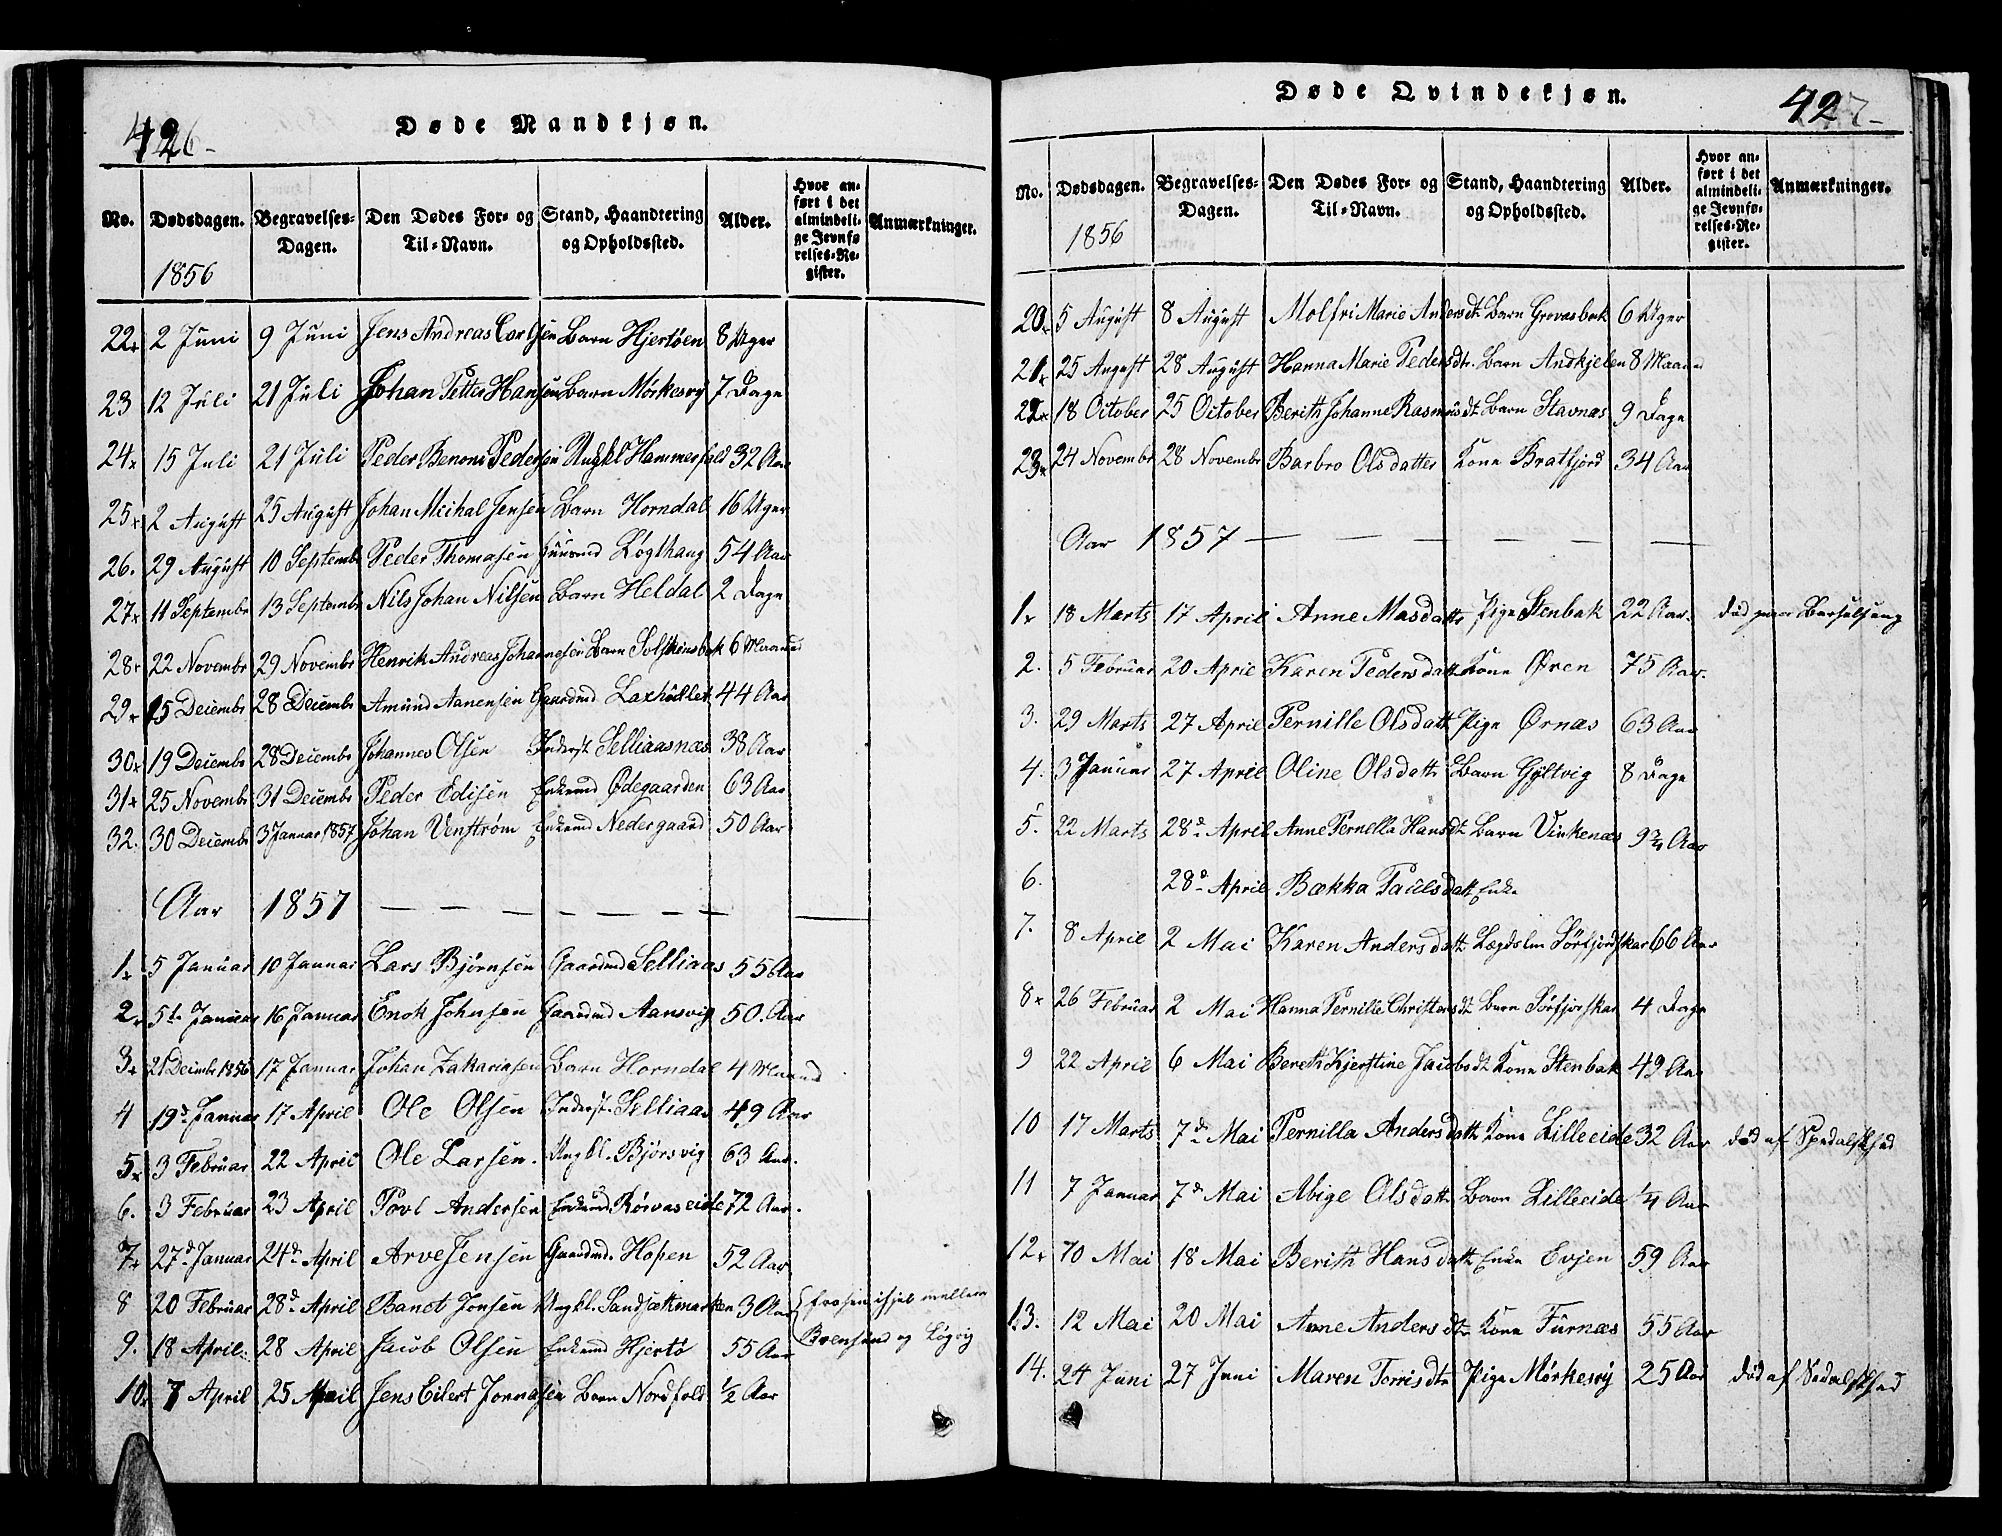 426-
Døde Mandkjøn.
No. Dødsdagen. Begravelses-Dagen. Den Dødes For- og Til-Navn. Stand, Haandtering og Opholdssted. Alder. Hvor anført i det almindelige Jevnførelses-Register. Anmærkninger.
1856
22 2 Juni 9 Juni Jens Andreas Carlsen Barn Hjertøen 8 Uger
23 12 Juli 21 Juli Johan Petter Hansen Barn Mørkesvig 7 Dage
24 15 Juli 21 Juli Peder Benoni Pedersen Ungkl Hammerfald 32 Aar
25 2 August 25 August Johan Michal Jensen Barn Horndal 16 Uger
26. 29 August 10 Septembr Peder Thomasen Huusmd Løgthaug 54 Aar
27 11 Septembr 13 Septembr Nils Johan Nilsen Barn Heldal 2 Dage
28 22 Novembr 29 Novembr Henrik Andreas Johannesen Barn Solskinsbak 6 Maaned
29 15 Decembr 28 Decembr Amund Aanensen Gaardmd Laxhullet 44 Aar
30 19 Decembr 28 Decembr Johannes Olsen Inderst Selliaasnæs 38 Aar
31 25 Novembr 31 Decembr Peder Edisen Enkemd Ødegaarden 63 Aar
32. 30 Decembr 3 Januar 1857 Johan Venstrøm Enkemd Nedergaard 50 Aar
Aar 1857 — — — — — — — —
1 5 Januar 10 Januar Lars Bjørnsen Gaardmd Selliaas 55 Aar
2 5te Januar 16 Januar Enok Johnsen Gaardmd Aansvig 50. Aar
3 21 Decimbr 1856 17 Januar Johan Zakariasen Barn Horndal 4 Maaned
4 19d Januar 17 April Ole Olsen Inderst. Selliaas 49 Aar
5 3 Februar 22 April Ole Larsen. Ungkl. Bjørsvig 63 Aar.
6. 3 Februar 23 April Povl Andersen Enkemd Rørvaseide 72 Aar.
7 27d Januar 24d April Arve Jensen Gaardmd. Hopen 52 Aar
8 20 Februar 28d April Bandt Jonsen Ungkl. Sandsætmarken 3 Aar { frosen ihjel mellem
9. 18 April. 28 April Jacob Olsen Enkemd Hjertø 55 Aar Brensund og Løgvig
10 7 April 25 April Jens Eilert Jonnasen Barn Nordfold ½ Aar
Døde Qvindekjøn.
427-
No. Dødsdagen. Begravelses-Dagen. Den Dødes For- og Til-Navn. Stand, Haandtering og Opholdssted. Alder. Hvor anført i det almindelige Jevnførelses-Register. Anmærkninger.
1856
20 5 August 8 August Molfri Marie Andersdt Barn Grovasbak 6 Uger
21 25 August 28 August Hanna Marie Pedersdtr. Barn Andkjelen 8 Maaned
22 18 October 25 October Berith Johanne Rasmusdt Barn Stavnæs 9 Dage
23 24 Novembr 28 Novembr Barbro Olsdatter Kone Bratfjord 34 Aar
Aar 1857 — — — — —
1 18 Marts 17 April Anne Masdattr Pige Stenbak 22 Aar. død paa Barselseng
2. 5 Februar 20 April Karen Pedersdatt Kone Øren 75 Aar.
3. 29 Marts 27 April Pernille Olsdatt Pige Ørnæs 63 Aar
4. 3 Januar 27 April Oline Olsdattr Barn Gyltvig 8 Dage
5. 22 Marts 28d April Anne Pernella Hansdt Barn Vinkenæs 9¾ Aar
6. 28d April Bækka Paulsdatt Enke
7. 8 April 2 Mai Karen Andersdattr Lægdslm Sørfjordskar 66 Aar
8 26 Februar 2 Mai Hanna Pernille Christensdt Barn Sørfjorskar 4 Dage
9 22 April 6 Mai Bereth Kjerstine Jacobsdt Kone Stenbak 49 Aar
10 17 Marts 7d Mai Pernilla Andersdattr Kone Lilleeide 32 Aar død af Spedalskhed
11 7 Januar 7d Mai Abige Olsdattr Barn Lilleeide ¼ Aar
12 10 Mai 18 Mai Berith Hansdatt Enke Evjen 59 Aar
13. 12 Mai 20 Mai Anne Andersdtr Kone Furnæs 55 Aar
14. 24 Juni 27 Juni Maren Torrisdtr Pige Mørkesvig 25 Aar død af Spedalskhed